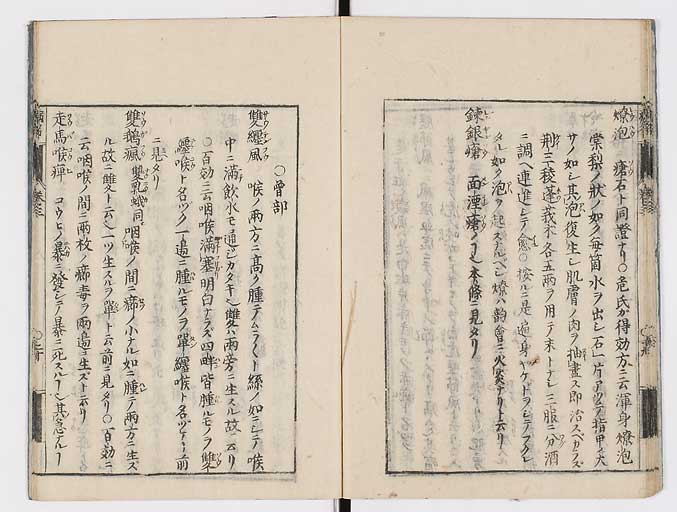 燎泡 瘡石ト同證ナリ○危氏が得効方ニ云渾身燎泡
棠梨ノ狀ノ如ク每箇水ヲ出シ石一片アツテ指甲ノ大
サノ如シ其泡復生シ肌膚ノ肉ヲ抽盡ス即治スベカラズ
荊三稜蓬莪朮各五両ヲ用テ末トナシ三服ニ分酒
ニ調ヘ連進シテ愈○按ルニ是遍身ヤケドラシテフクレ
タル如ク泡ヲ起スナルベシ燎ハ韵會ニ火炙ナリト云リ
錬銀瘡 面湮瘡ノヿ本條ニ見タリ
○曾部
雙纒風 喉ノ兩方ニ高ク腫テムラムラト絲ノ如ニシテ喉
中ニ満飲水モ通ジカタキヿ雙ハ兩旁ニ生スル故ニ云リ
○百効ニ云咽喉滿塞明白ナラズ四畔皆腫ルモノヲ雙
纒喉ト名ツク一邉ニ腫ルモノヲ單纒喉ト名ツクト前
ニ見タリ
雙鵝風 雙乳蛾同 咽喉ノ間ニ癤ノ小ナル如ニ腫テ兩方ニ生ズ
ル故ニ雙ト云ヘ一ツ生スルヲ單ト云前ニ見タリ○百効ニ
云咽喉ノ間ニ兩枚ノ癤毒ヲ兩邉ニ生ズト云リ
走馬喉痺 コウヒノ暴ニ發シテ暴ニ死スルヿ其急ナルヿ